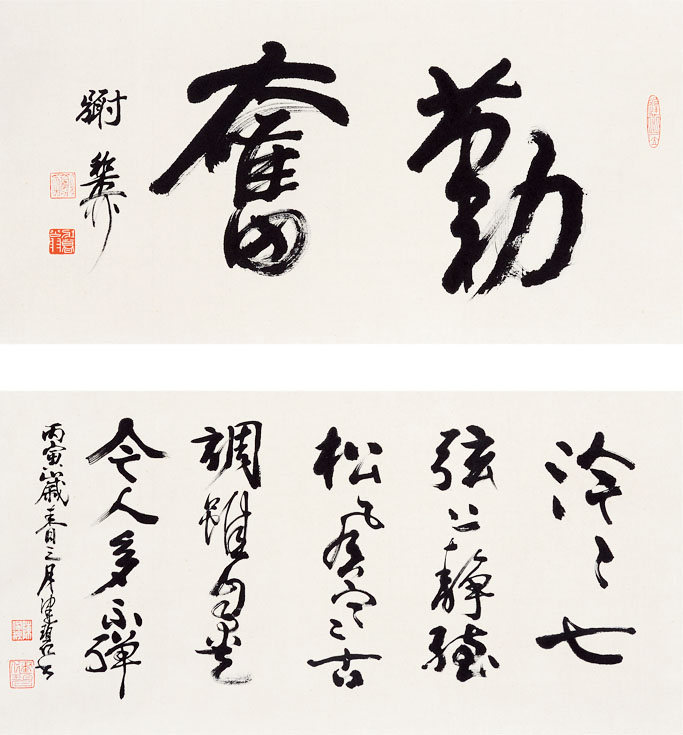 勤奮
泠々七
弦上静聽
松風寒古
調雖自愛
今人多不彈
丙寅歲春三月